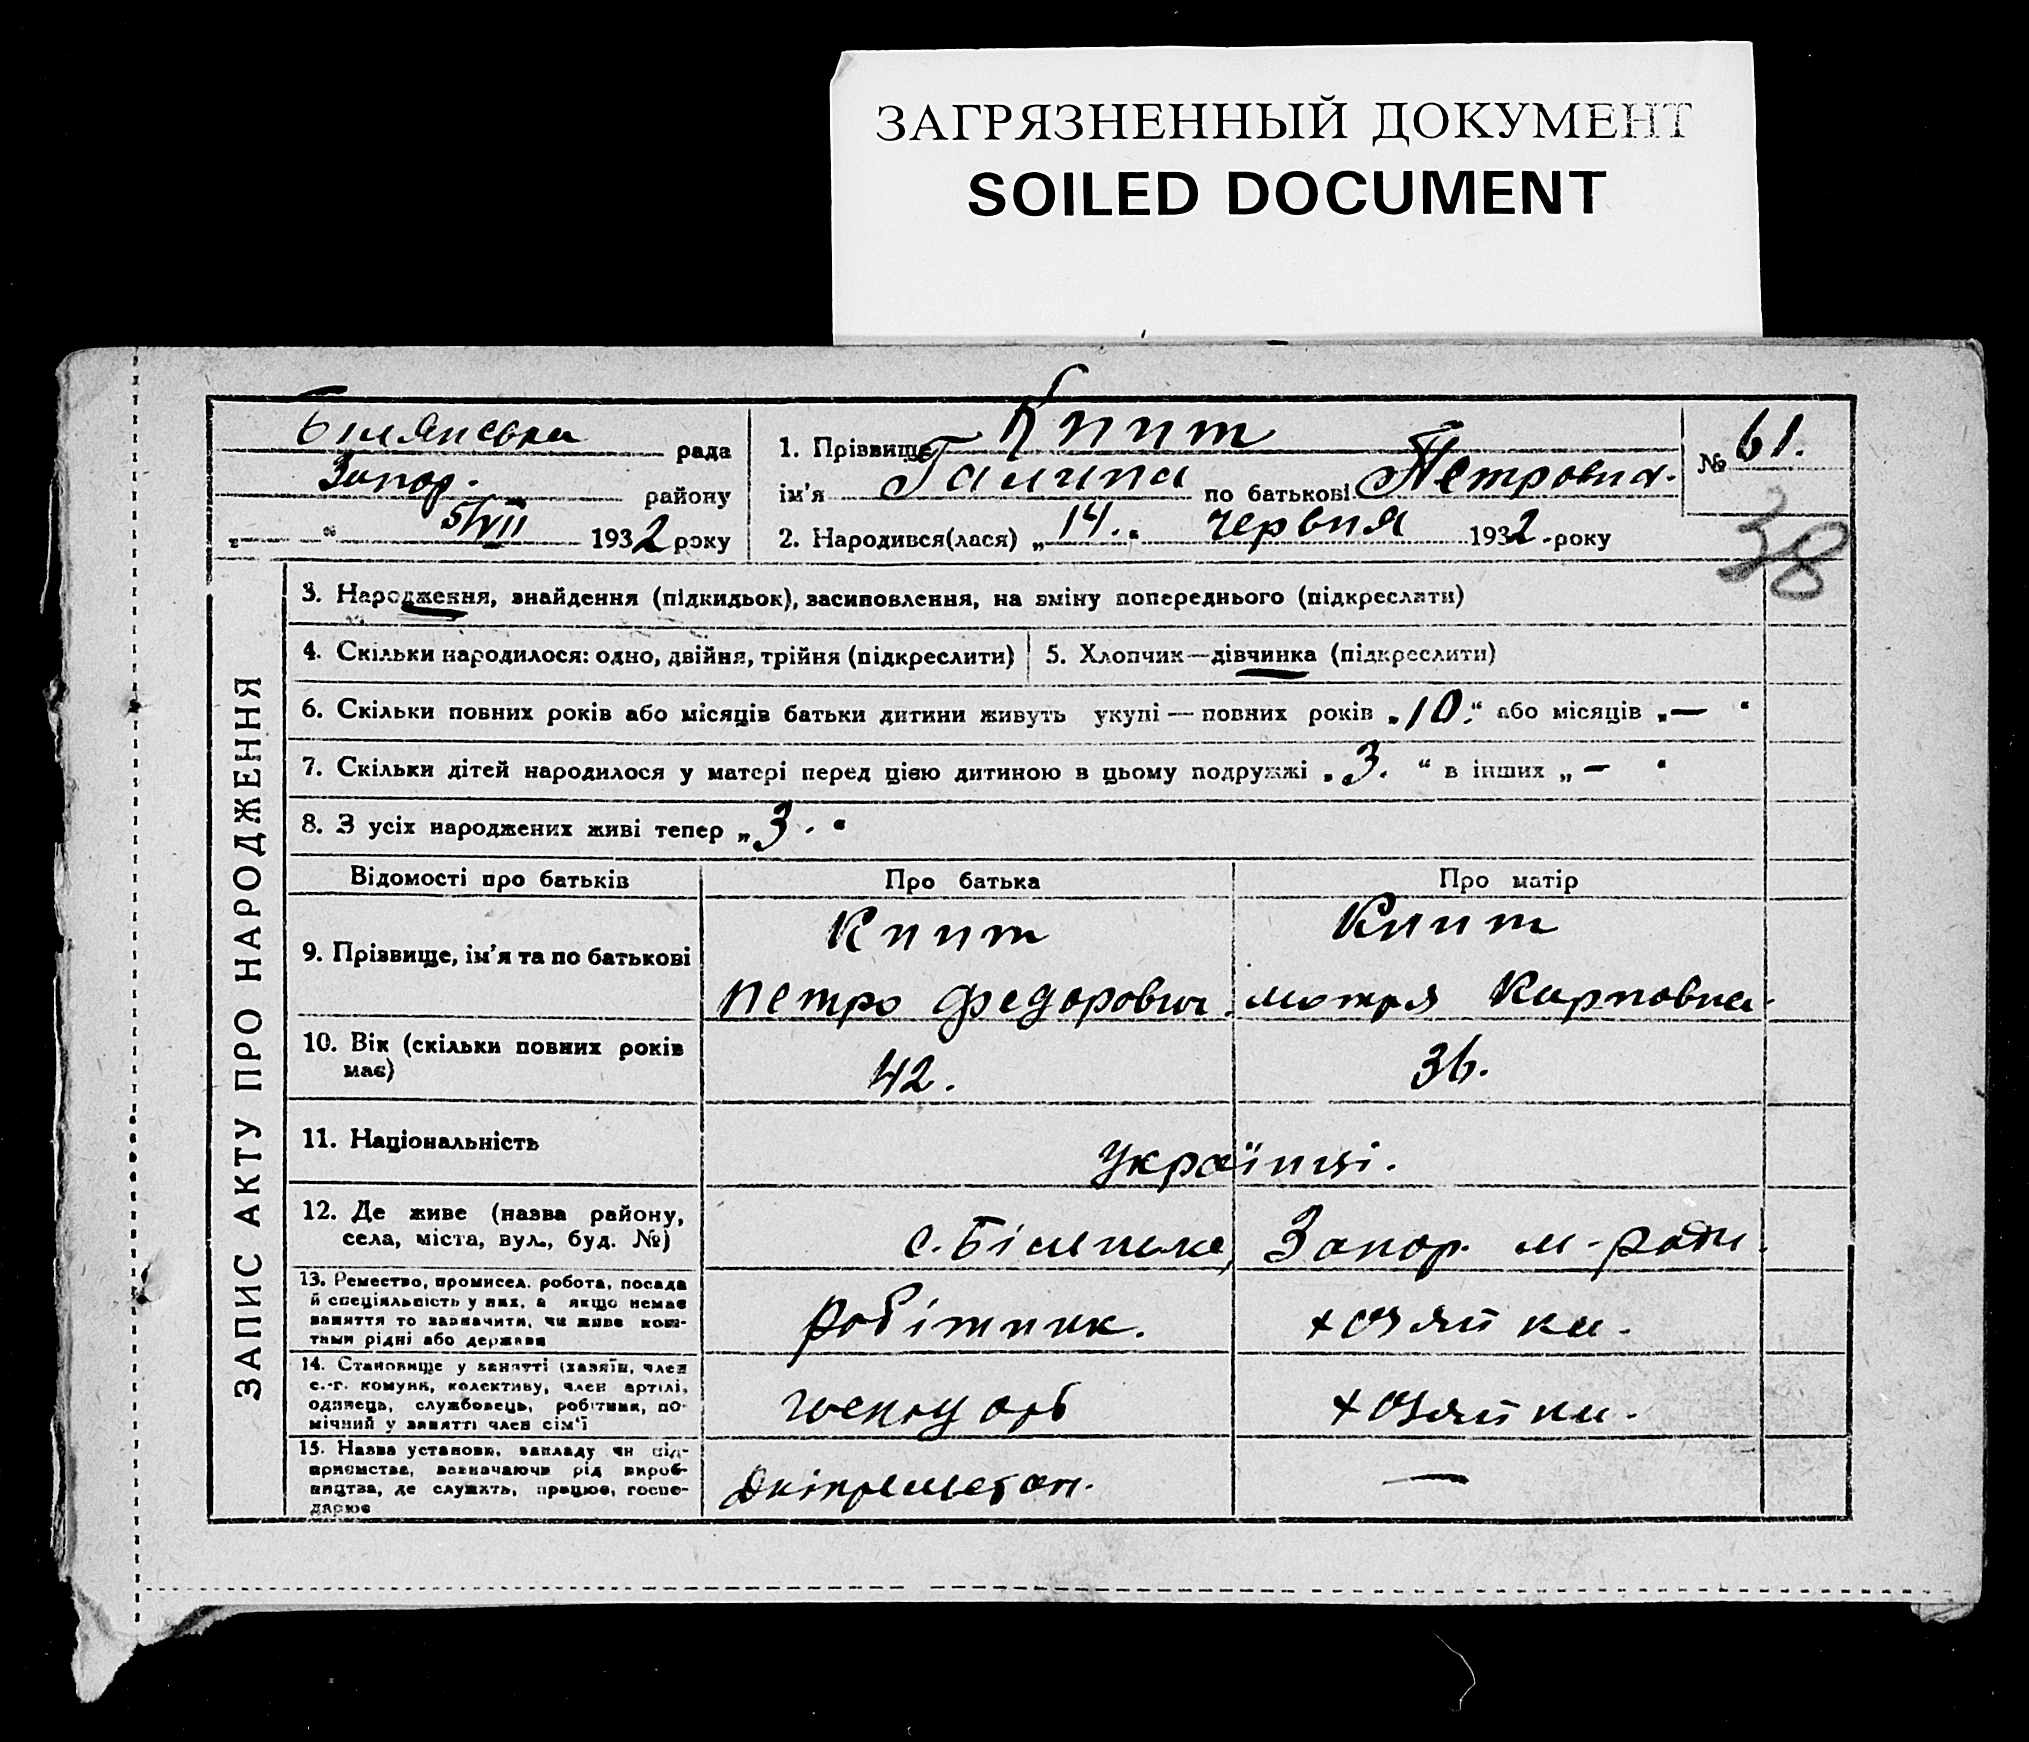 ЗАГРЯЗНЕННЫЙ ДОКУМЕНТ
SOILED DOCUMENT
ЗАПИС АКТУ ПРО НАРОДЖЕННЯ
рада
Запор. району
„ “ 5/VII 1932 року
1. Прізвище Книт
ім'я Галина по батькові Петровна.
2. Народився(лася) „14.“ червня 1932. року
№ 61.
38
3. Народження, знайдення (підкидьок), засиновлення, на зміну попереднього (підкреслити)
4. Скільки народилося: одно, двійня, трійня (підкреслити)
5. Хлопчик—дівчинка (підкреслити)
6. Скільки повних років або місяців батьки дитини живуть укупі — повних років „10.“ або місяців „—“
7. Скільки дітей народилося у матері перед цією дитиною в цьому подружжі „3.“ в інших „—“
8. З усіх народжених живі тепер „3.“
Відомості про батьків
Про батька
Про матір
9. Прізвище, ім'я та по батькові
Книт
Петро Федорович.
Книт
Мотря Карповна.
10. Вік (скільки повних років має)
42.
36.
11. Національність
українці.
12. Де живе (назва району, села, міста, вул., буд. №)
с. Біленьке, Запор. м-ради.
13. Ремество, промисел. робота, посада
й спеціяльність у них, а якщо немає
заняття то зазначити, чи живе кош-
тами рідні або держави
робітник.
хозяйка.
14. Становище у занятті (хазяїн, член
с.-г. комуни, колективу, член артілі,
одинець, службовець, робітник, по-
мічний у занятті член сім'ї
хозяйка.
15. Назва установи, закладу чи під-
приємства, зазначаючи рід вироб-
ництва, де служить, працює, госпо-
дарює
—